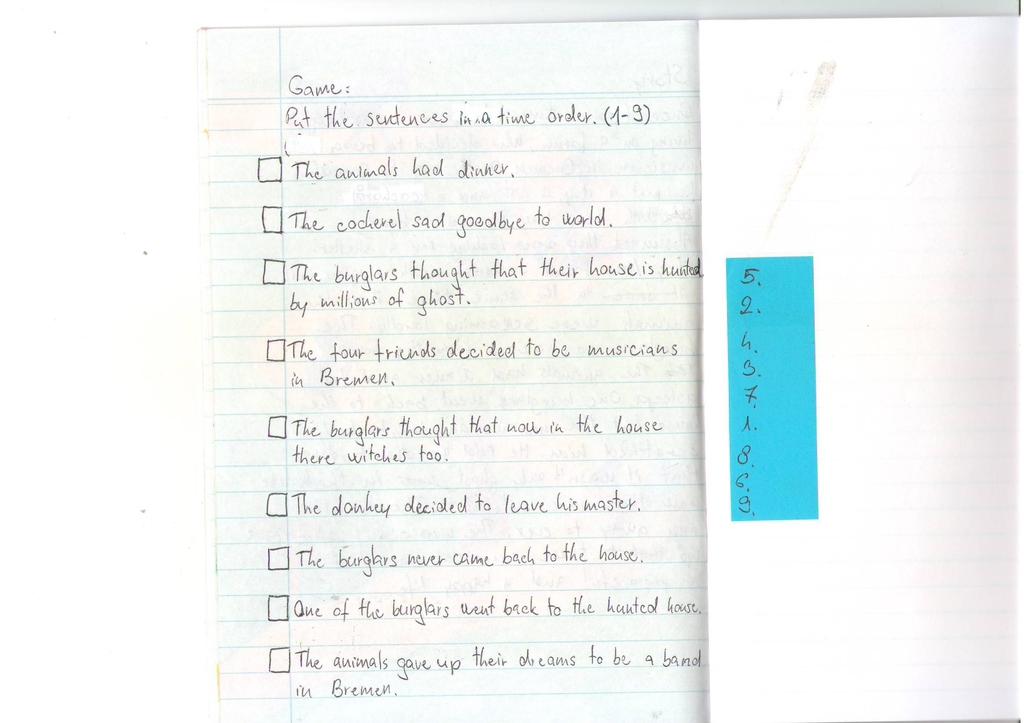 Game:
Put the sentences in a time order. (1-9)
The animals had dinner.
The cocherel sad goodbye to world.
The burglars thought that their house is hunted
by millions of ghost.
The four friends decided to be musicians
in Bremen.
The burglars thought that now in the house
there witches too.
The donkey decided to leave his master.
The burglars never came back to the house.
One of the burglars went back to the hunted house.
The animals gave up their dreams to be a band
in Bremen.
5.
2.
4.
3.
7.
1.
8.
6.
9.